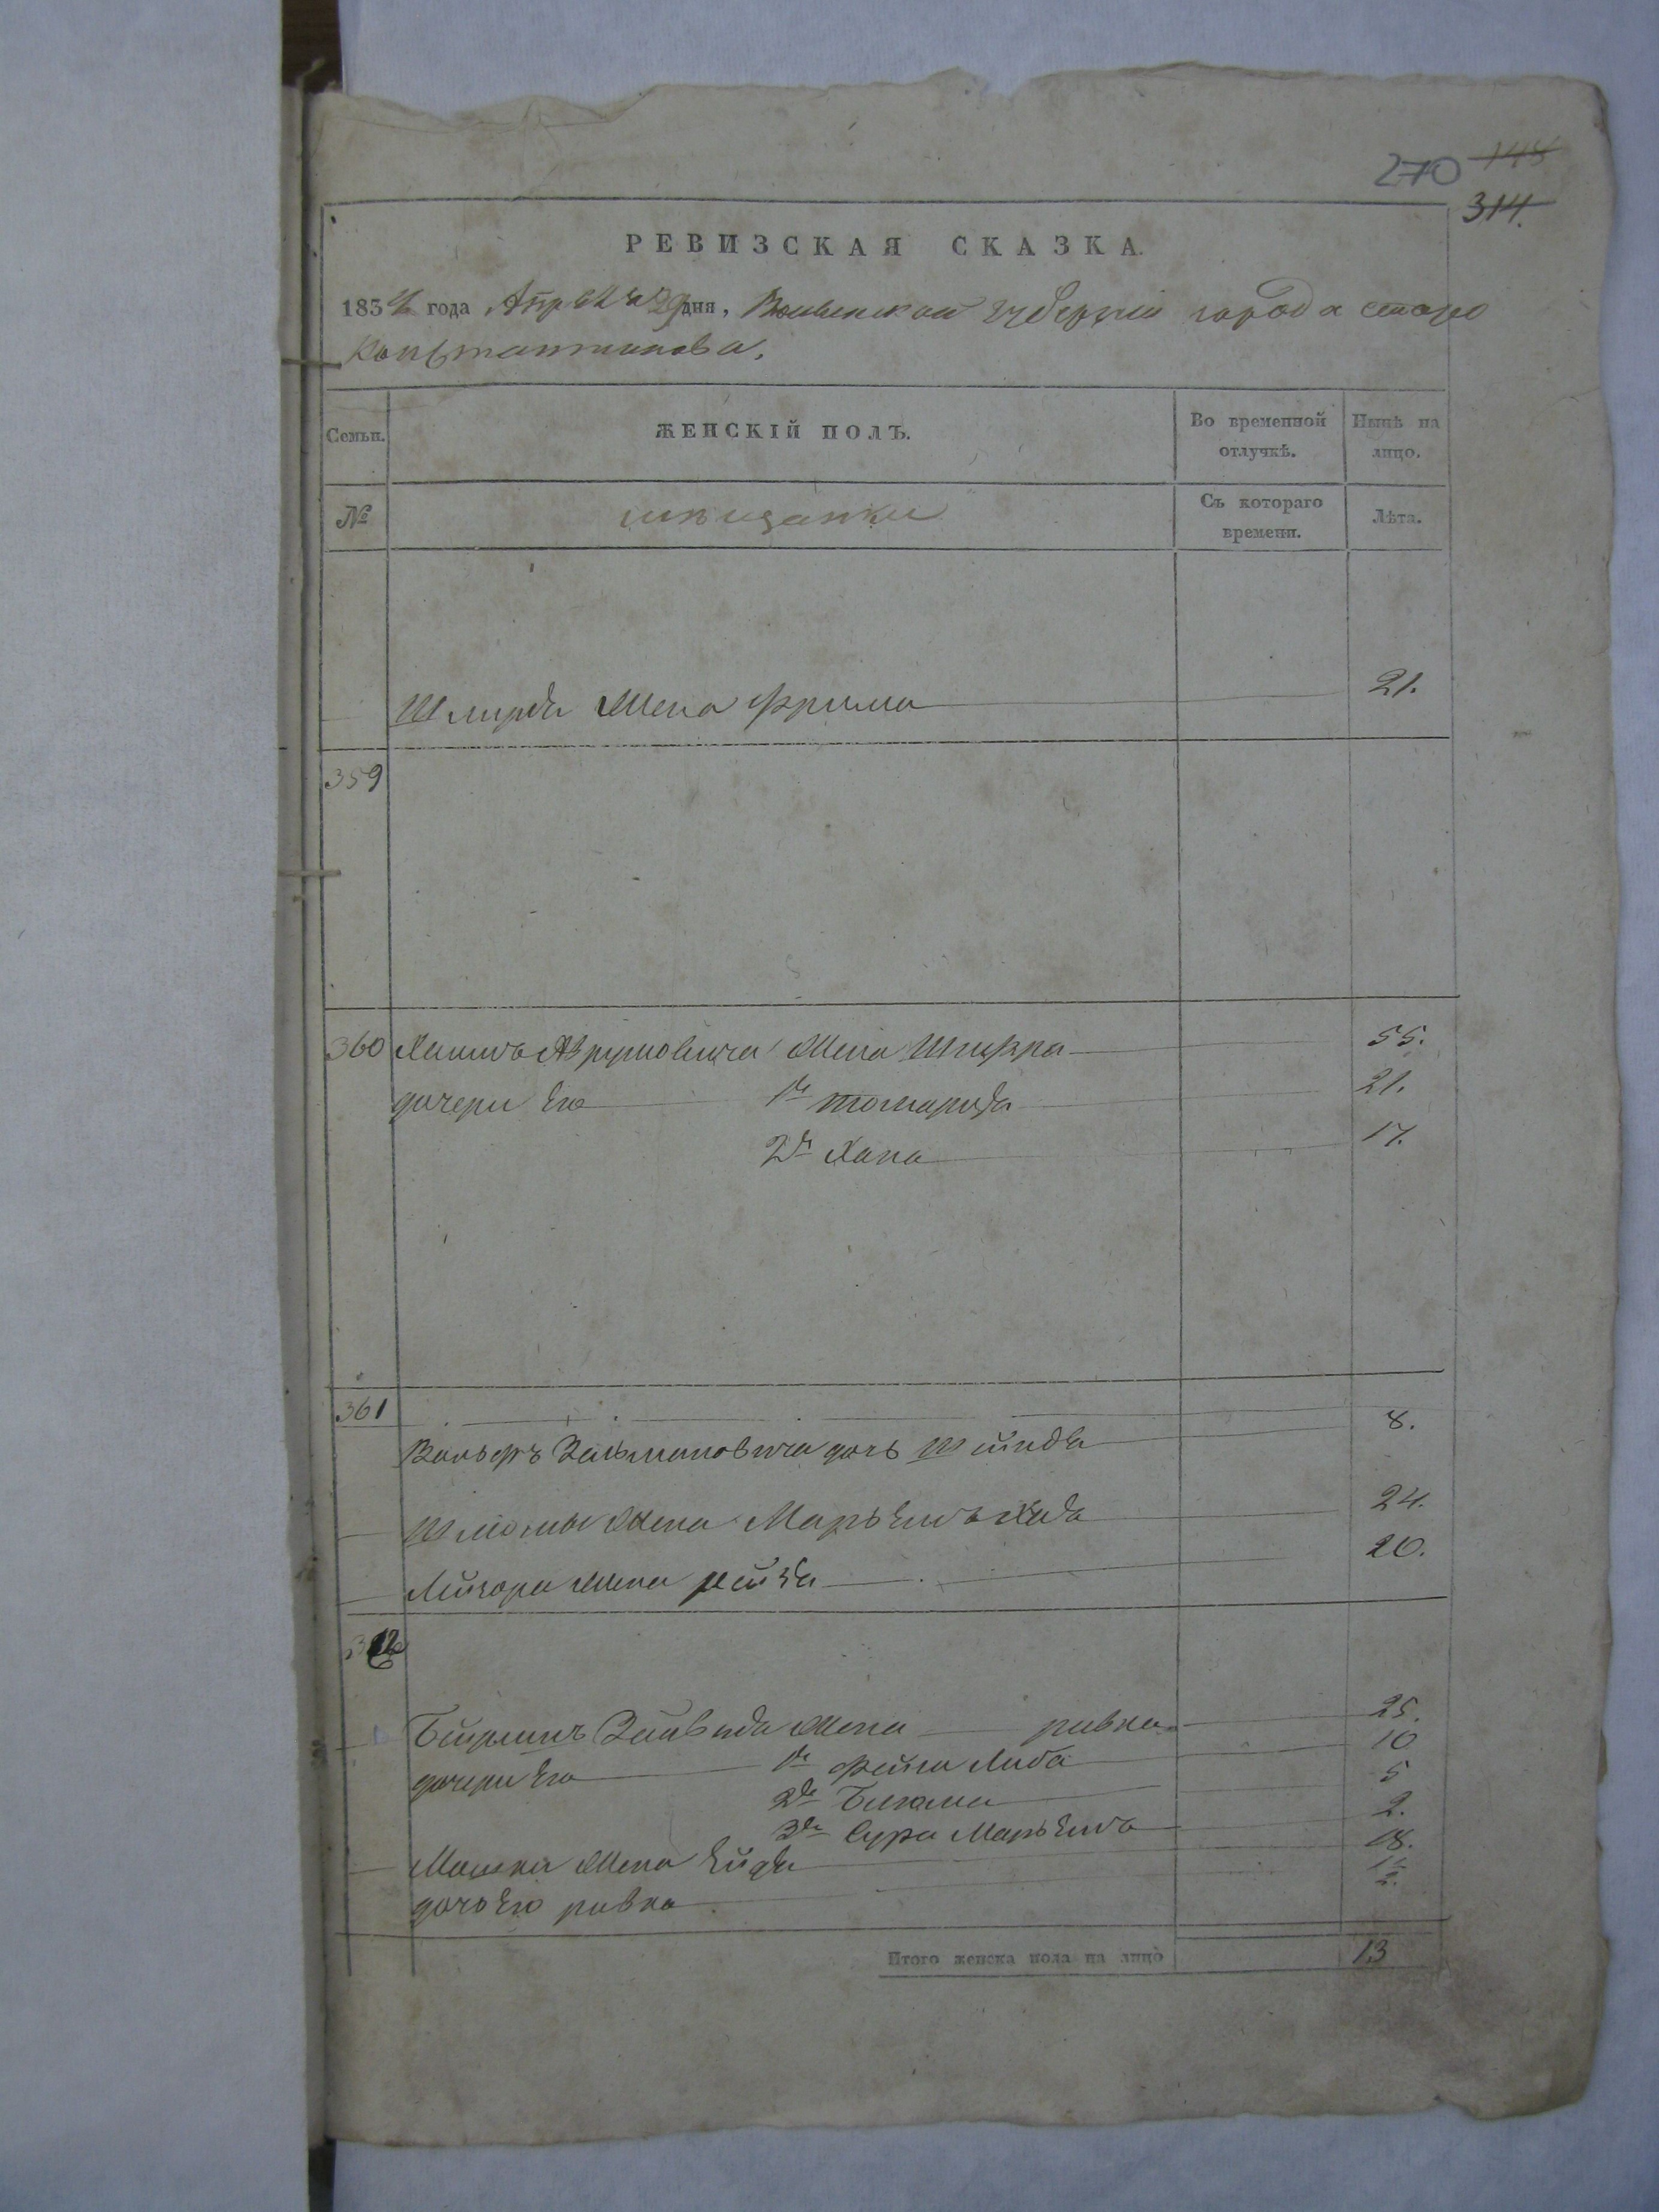 270 148
314.
РЕВИЗСКАЯ СКАЗКА.
1834 года Апреля 29 дня, Волынской губерніи города старо
Константинова.
Семьи.
ЖЕНСКІЙ ПОЛЪ.
Во временной отлучкѣ.
Нынѣ на лицо.
№
мѣщанки
Съ котораго времени.
Лѣта.
жена Фрима 21.
359
360 Хаима жена Шифра 55.
дочери его 1я 21.
2я Хана 17.
361
Вольфъ Зельмановича дочь Шейндя 8.
Шлиомы жена Марьямъ 24.
Лейзора жена рейзя 20.
362
жена ривка 25.
дочери его 1я фейга Либа 10
2я 5
3я Сура Марьямъ 2.
Мошка жена Ейдя 18.
дочь его ривка 1/2.
Итого женска пола на лицо 13